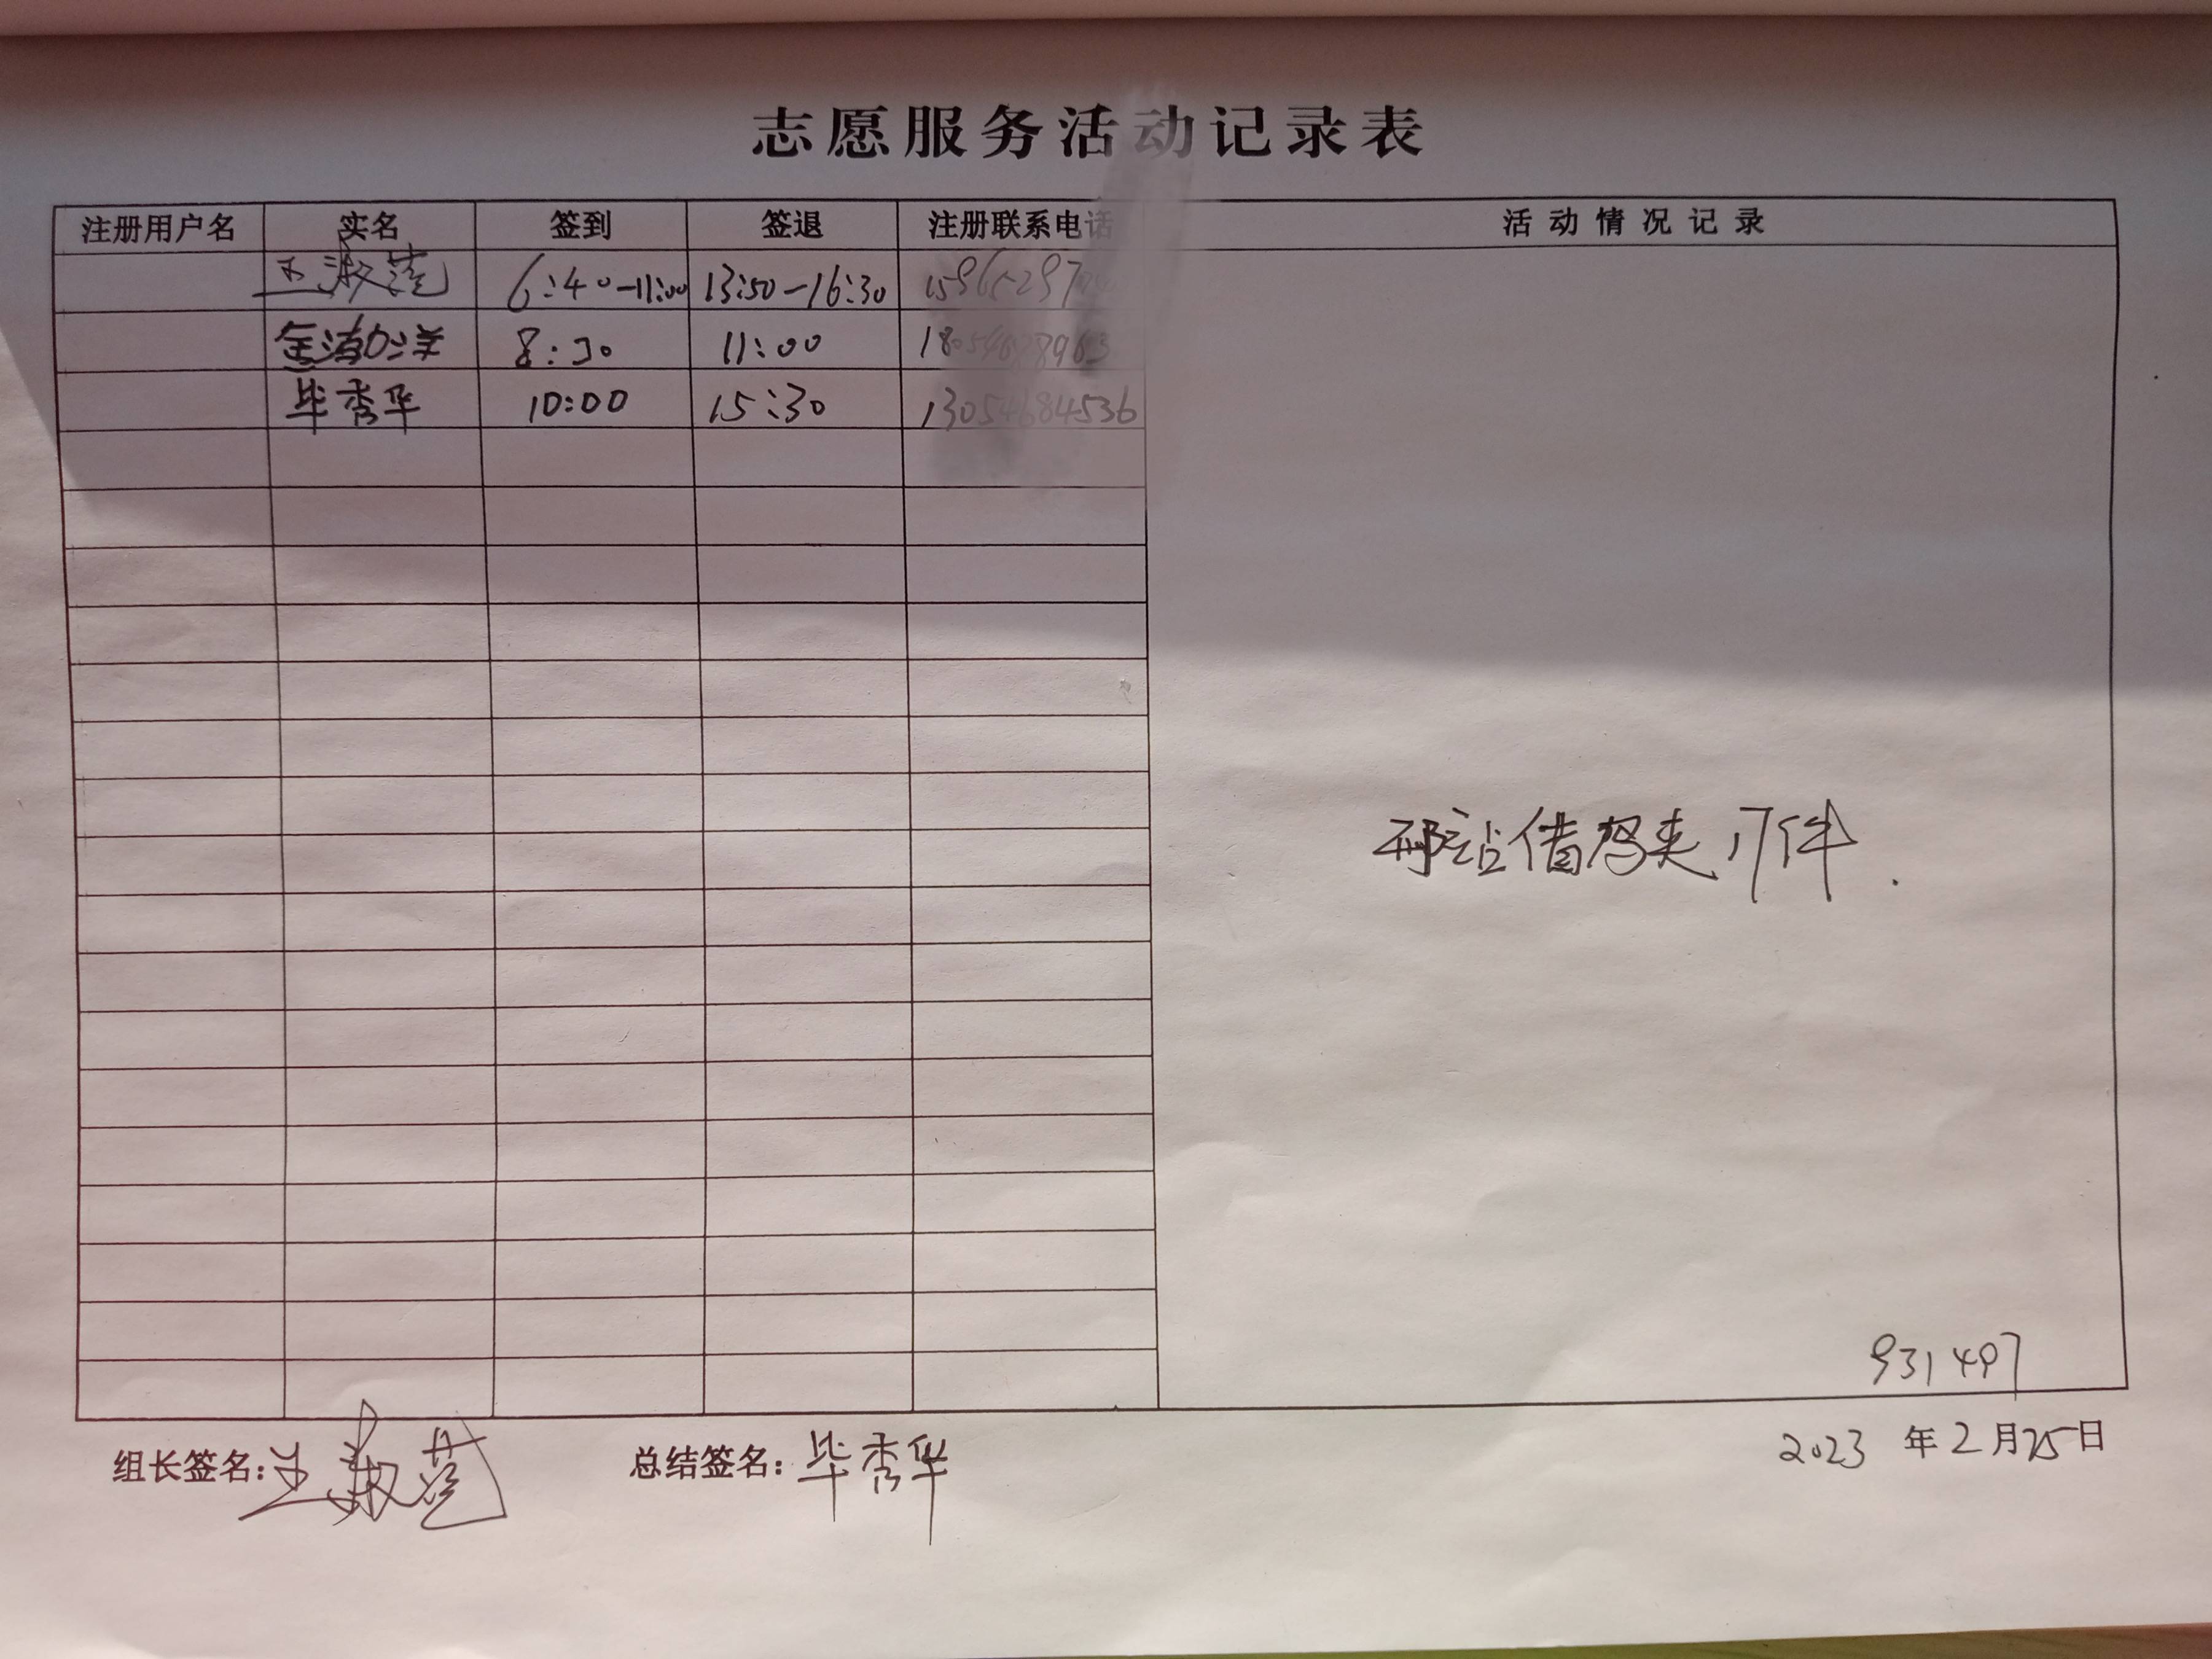 志愿服务活动记录表
注册用户名 实名 签到 签退 注册联系电话 活动情况记录
王淑 6:40-11:00 13:50-16:30
8:30 11:00
毕秀华 10:00 15:30
站借 17件.
931497
组长签名: 王淑 总结签名: 毕秀华 2023 年 2 月 25 日